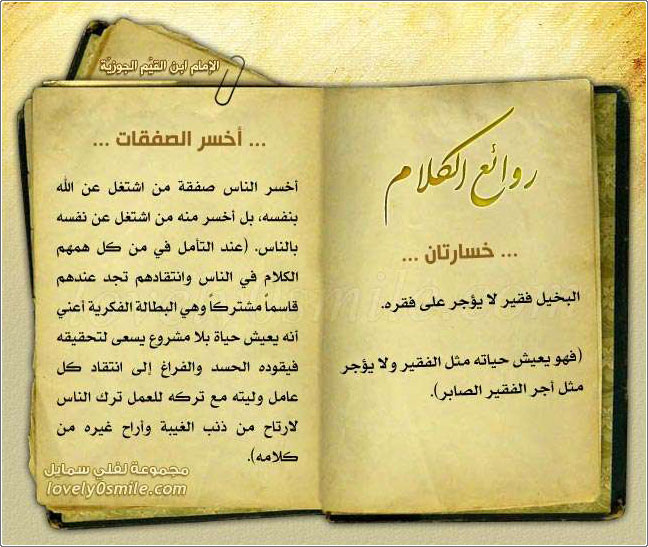 الإمام ابن القيّم الجوزيّة
روائع الكلام
... خسارتان ...
البخيل فقير لا يؤجر على فقره.
(فهو يعيش حياته مثل الفقير ولا يؤجر
مثل أجر الفقير الصابر).
... أخسر الصفقات ...
أخسر الناس صفقة من اشتغل عن الله
بنفسه، بل أخسر منه من اشتغل عن نفسه
بالناس. (عند التأمل في من كل همهم
الكلام في الناس وانتقادهم تجد عندهم
قاسماً مشتركاً وهي البطالة الفكرية أعني
أنه يعيش حياة بلا مشروع يسعى لتحقيقه
فيقوده الحسد والفراغ إلى انتقاد كل
عامل وليته مع تركه للعمل ترك الناس
لارتاح من ذنب الغيبة وأراح غيره من
كلامه).
مجموعة لفلي سمايل
lovely0smile.com